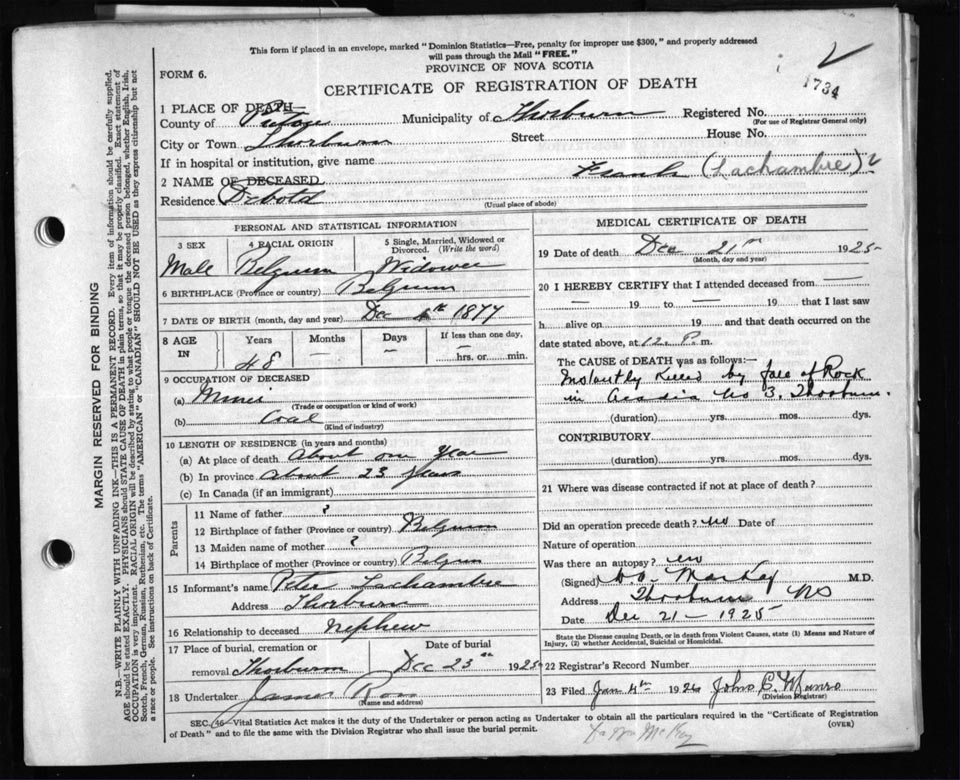 This form if placed in an envelope, marked "Dominion Statistics—Free, penalty for improper use $300," and properly addressed
will pass through the Mail "FREE."
PROVINCE OF NOVA SCOTIA
FORM 6.
CERTIFICATE OF REGISTRATION OF DEATH
1734
1 PLACE OF DEATH
County of Pictou Municipality of Thorburn Registered No.
(For use of Registrar General only)
City or Town Thorburn Street House No.
If in hospital or institution, give name
2 NAME OF DECEASED Frank (Lachambre)
Residence Debold
(Usual place of abode)
MARGIN RESERVED FOR BINDING
N.B.—WRITE PLAINLY WITH UNFADING INK—THIS IS A PERMANENT RECORD. Every item of information should be carefully supplied.
AGE should be stated EXACTLY. PHYSICIANS should STATE CAUSE OF DEATH in plain terms, so that it may be properly classified. Exact statement of
OCCUPATION is very important. RACIAL ORIGIN will be described by stating to what people or tongue the deceased person belonged, whether English, Irish,
Scotch, French, German, Russian, Ruthenian, etc. The terms "AMERICAN" or "CANADIAN" SHOULD NOT BE USED as they express citizenship but not
a race or people. See instructions on back of Certificate.
PERSONAL AND STATISTICAL INFORMATION
3 SEX 4 RACIAL ORIGIN 5 Single, Married, Widowed or
Divorced. (Write the word)
Male Belgium Widower
6 BIRTHPLACE (Province or country) Belgium
7 DATE OF BIRTH (month, day and year) Dec 4th 1877
8 AGE IN Years Months Days If less than one day,
48 — — — hrs. or min.
9 OCCUPATION OF DECEASED
(a) Miner
(Trade or occupation or kind of work)
(b) Coal
(Kind of industry)
10 LENGTH OF RESIDENCE (in years and months)
(a) At place of death About one Year
(b) In province About 23 Years
(c) In Canada (if an immigrant)
Parents
11 Name of father ?
12 Birthplace of father (Province or country) Belgium
13 Maiden name of mother ?
14 Birthplace of mother (Province or country) Belgium
15 Informant's name Peter Lachambre
Address Thorburn
16 Relationship to deceased nephew
17 Place of burial, cremation or Date of burial
removal Thorburn Dec 23rd 1925
18 Undertaker James Ross
(Name and address)
MEDICAL CERTIFICATE OF DEATH
19 Date of death Dec 21st 1925
(Month, day and year)
20 I HEREBY CERTIFY that I attended deceased from
— 19 to — 19 that I last saw
h alive on 19 — and that death occurred on the
date stated above, at 12 P. m.
The CAUSE OF DEATH was as follows:—
Instantly Killed by fall of Rock
in Acadia No 3, Thorburn.
(duration) yrs. mos. dys.
CONTRIBUTORY
(duration) yrs. mos. dys.
21 Where was disease contracted if not at place of death?
Did an operation precede death? no Date of
Nature of operation
Was there an autopsy? no
(Signed) M.D.
Address Thorburn NS
Date Dec 21 — 1925
State the Disease causing Death, or in death from Violent Causes, state (1) Means and Nature of
Injury, (2) whether Accidental, Suicidal or Homicidal.
22 Registrar's Record Number
23 Filed Jan 4th 1926 John C. Munro
(Division Registrar)
SEC. 46—Vital Statistics Act makes it the duty of the Undertaker or person acting as Undertaker to obtain all the particulars required in the "Certificate of Registration
of Death" and to file the same with the Division Registrar who shall issue the burial permit. (OVER)